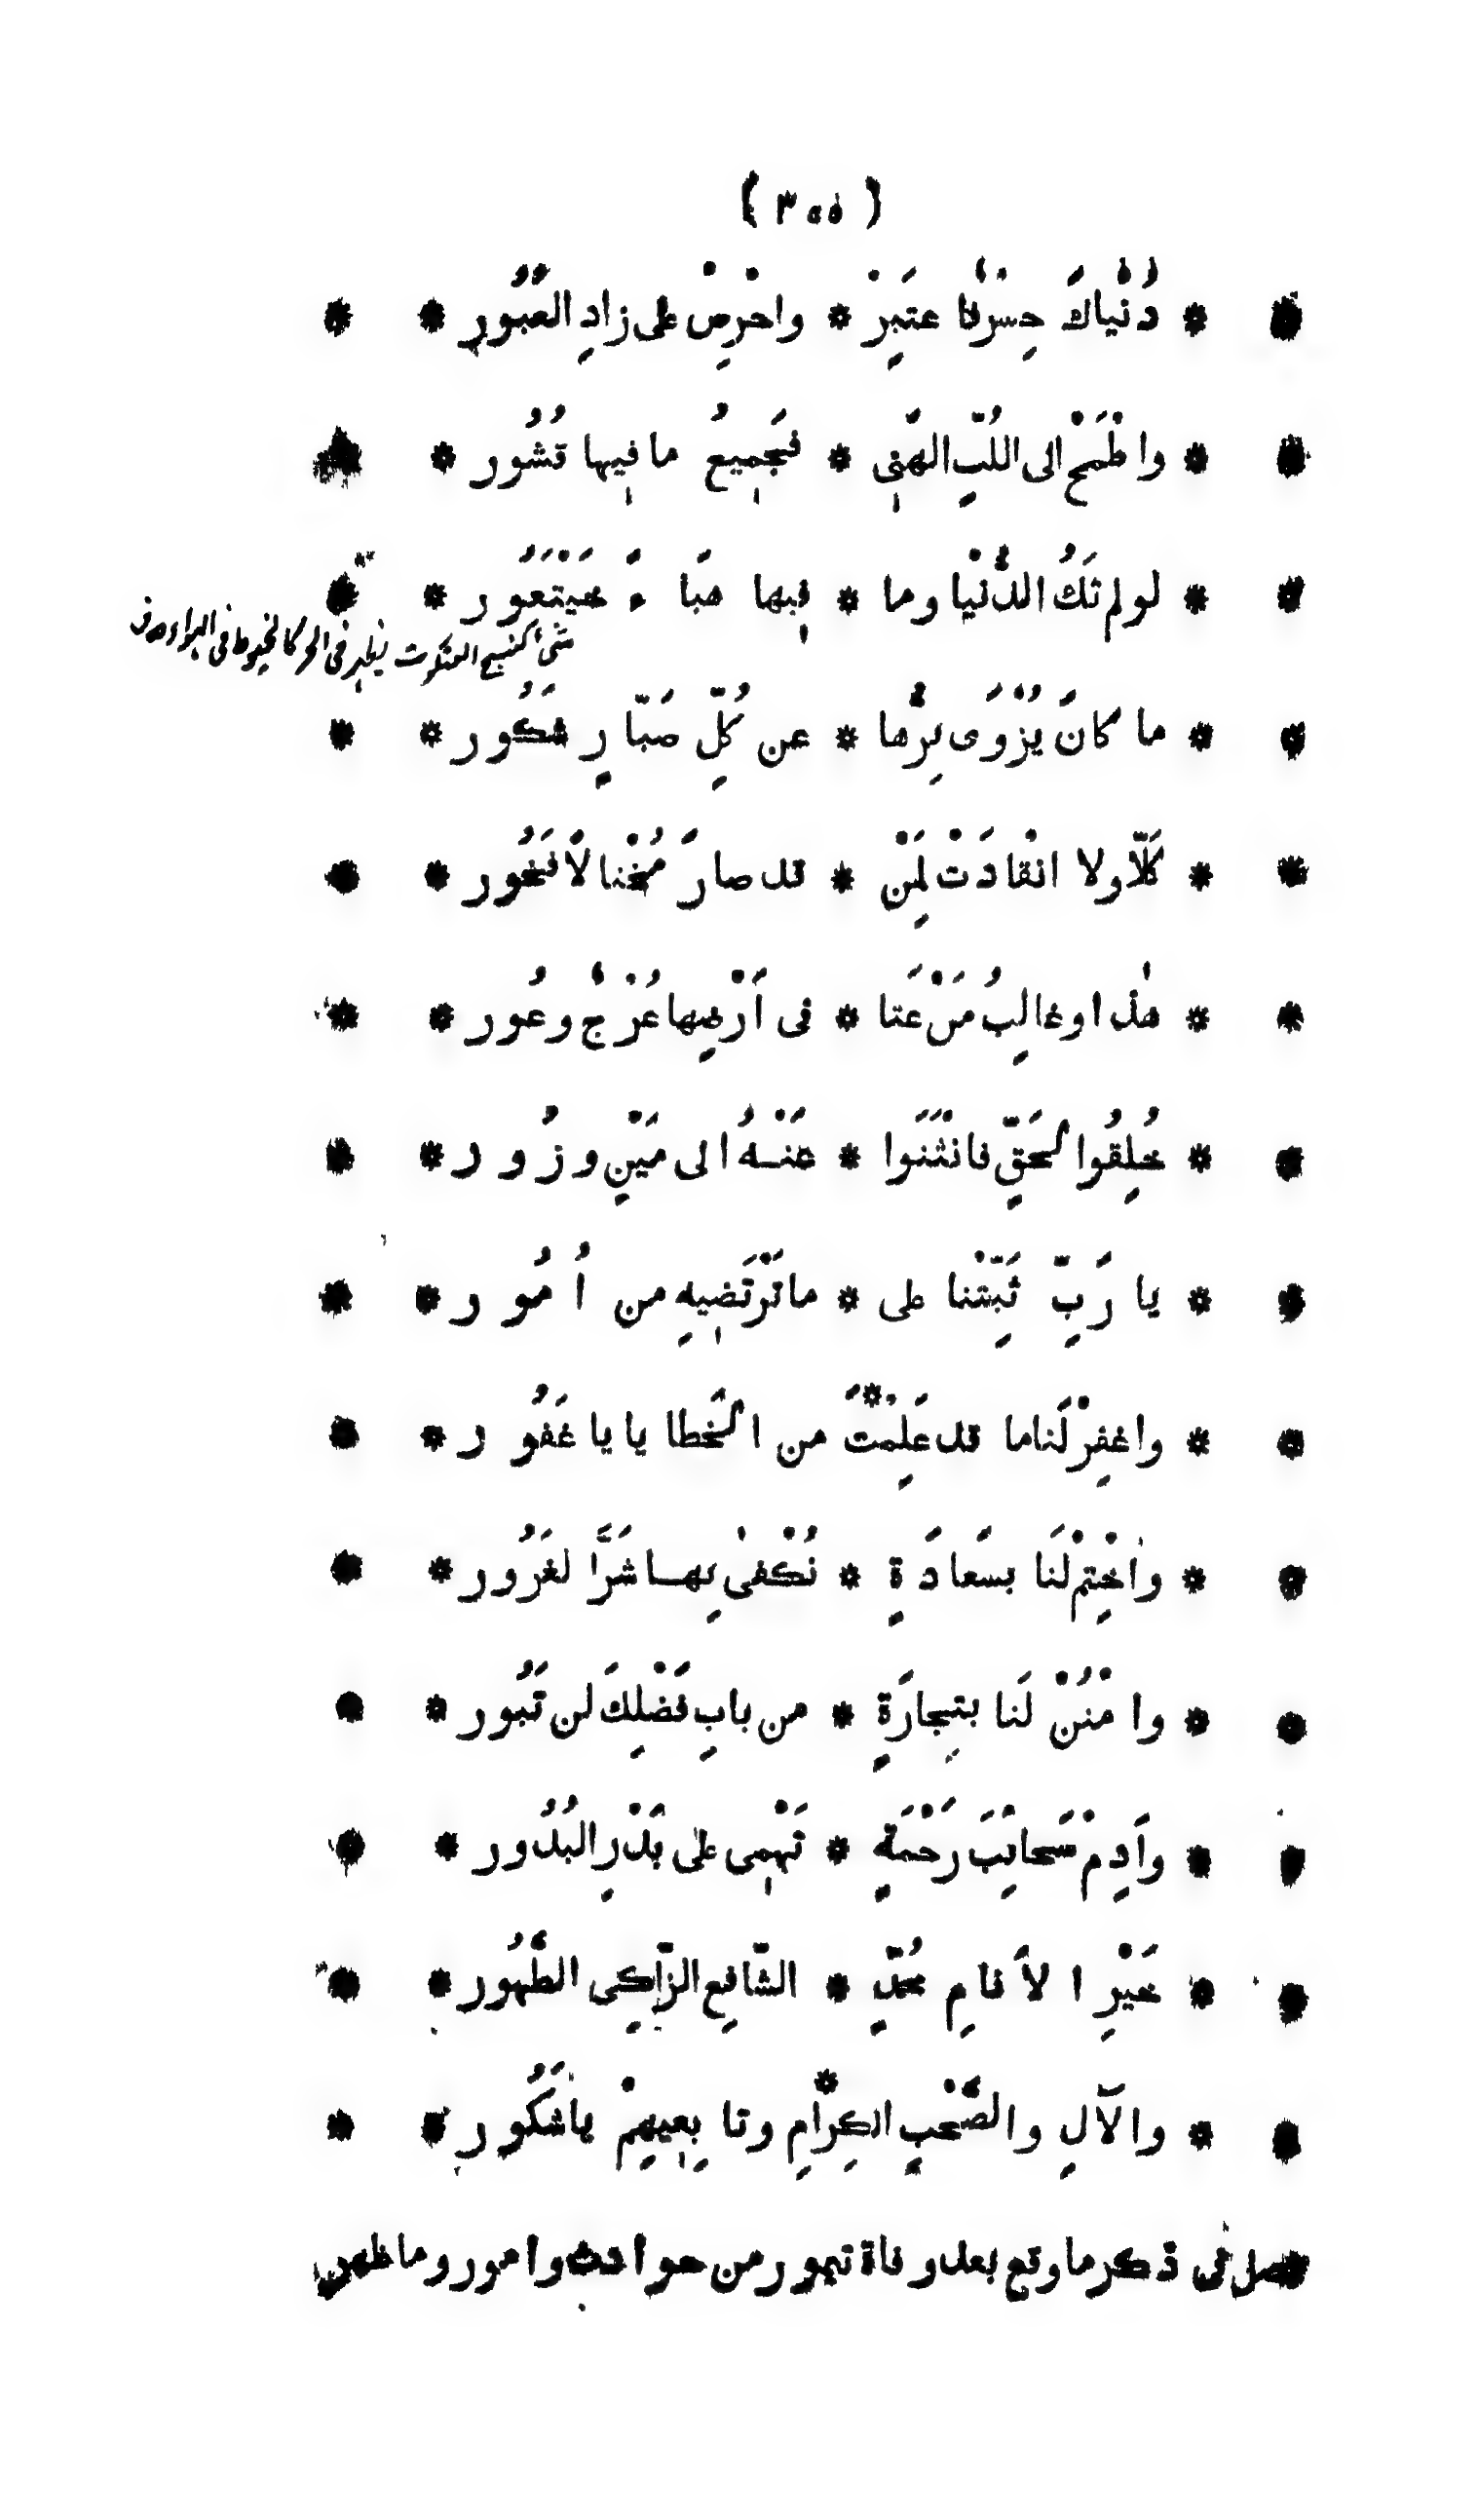 (٣٥٥)
* * دُنْياكَ جِسْرٌ فاعتَبِرْ * واحْرِصْ على زادِ العُبُور * *
* * واطْمَحْ الى اللُبِّ الهَنِى * فَجَمِيعُ ما فِيها قُشُور * *
* * لو لم تَكُ الدُّنْيا وما * فِيها هَباءً خَيْتَعُور * *
شئ كنسج العنكبوت يظهر فى الحر كالخيوط فى الهواء
* * ما كانَ يُزْوَى بِرُّها * عن كُلِّ صَبّارٍ شَكُور * *
* * كَلّا ولا انْقادَتْ لِمَنْ * قد صارَ مُخْتالاً فَخُور * *
* * هٰذا وغالِبُ مَنْ عَتا * فى اَرْضِها عُرْجٌ وعُور * *
* * خُلِقُوا لحَقٍّ فانْثَنَوا * عَنْهُ الى مَيْنٍ وزُور * *
* * يا رَبِّ ثَبِّتْنا على * ما تَرْتَضِيهِ من اُمُور * *
* * واغفِرْ لَنا ما قد عَلِمْتَ * من الخَطايا يا غَفُور * *
* * واخْتِمْ لَنا بسَعادَةٍ * نُكْفىٰ بِها شَرَّ الغَرُور * *
* * وامْنُنْ لَنا بتِجارَةٍ * من بابِ فَضْلِكَ لن تَبُور * *
* * واَدِمْ سَحائِبَ رَحْمَةٍ * تَهْمِى على بَدْرِ البُدُور * *
* * خَيْرِ الاَنامِ مُحَمَّدٍ * الشّافِعِ الزّاكِى الطَّهُور * *
* * والآلِ والصَّحْبِ الكِرامِ * وتابِعِيهِمْ ياشَكُور * *
فصل فى ذكر ما وقع بعد وفاة تيمور من حوادث وامور وما ظهر من